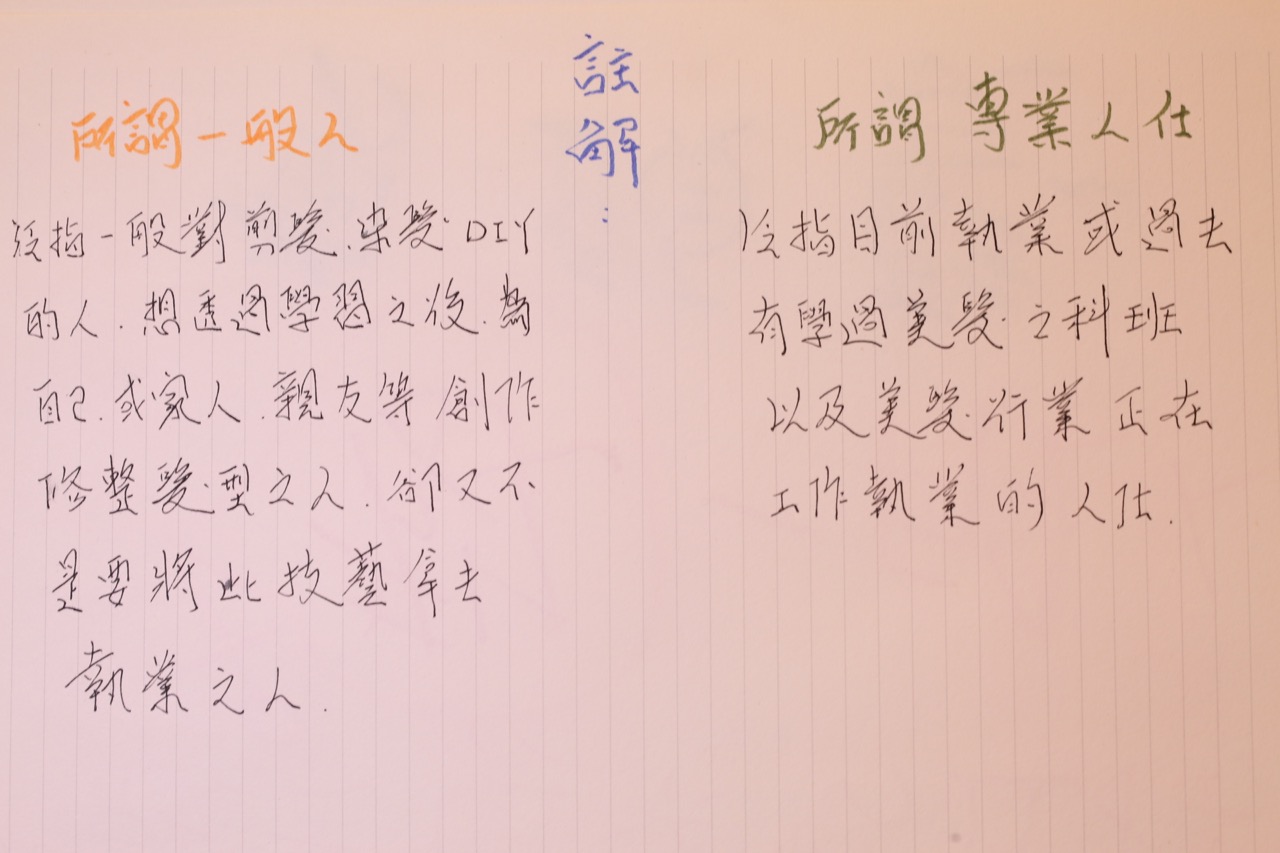 註解：
所謂一般人
指一般對剪髮、染髮DIY
的人.想透過學習之後.為
自己.或家人.親友等創作
修整髮型之人.卻又不
是要將此技藝拿去
執業之人.
所謂 專業人仕
指目前執業或過去
有學過美髮之科班
以及美髮行業正在
工作執業的人仕.